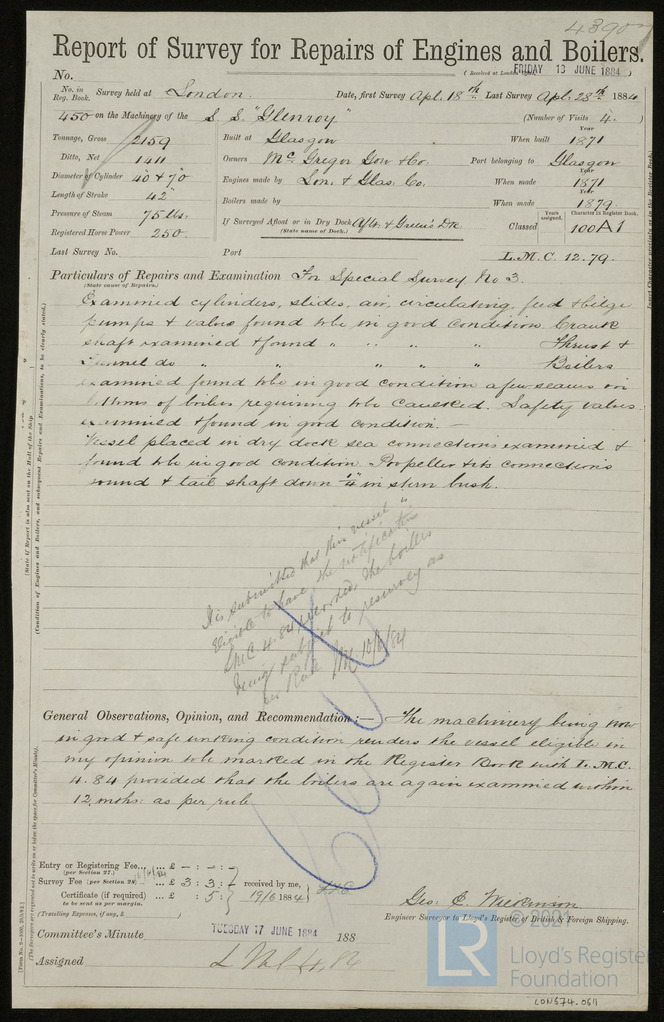 43907
Report of Survey for Repairs of Engines and Boilers.
(Received at London Office FRIDAY 13 JUNE 1884)
No.
No. in Reg. Book. Survey held at London. Date, first Survey Apl. 18th Last Survey Apl. 28th 1884
450 on the Machinery of the S. S. "Glenroy" (Number of Visits 4.)
Tonnage, Gross 2159 Built at Glasgow When built Year 1871
Ditto, Net 1411 Owners McGregor Gow & Co. Port belonging to Glasgow
Diameter of Cylinder 40 & 70 Engines made by Lon. & Glas. Co. When made Year 1871
Length of Stroke 42" Boilers made by When made 1879
Pressure of Steam 75 lbs. If Surveyed Afloat or in Dry Dock Aflt. & Green's D.k. Classed Years assigned. Character in Register Book. 100A1
Registered Horse Power 250. (State name of Dock.)
Last Survey No. Port L.M.C. 12.79.
Particulars of Repairs and Examination For Special Survey No 3.
(State cause of Repairs.)
Examined cylinders, slides, air, circulating, feed & bilge
pumps & valves found to be in good condition. Crank
shaft examined & found " " " " Thrust &
tunnel do " " " " " Boilers
examined found to be in good condition a few seams on
bottoms of boilers requiring to be caulked. Safety valves
examined & found in good condition.
Vessel placed in dry dock sea connections examined &
found to be in good condition. Propeller & its connections
sound & tail shaft down 1/4" in stern bush.
It is submitted that this vessel is
eligible to have the notification
LMC 4.84 recorded, the boilers
being subject to resurvey as
per Rule
General Observations, Opinion, and Recommendation:— The machinery being now
in good & safe working condition renders the vessel eligible in
my opinion to be marked in the Register Book with L.M.C.
4.84 provided that the boilers are again examined within
12 mohs: as per rule
Entry or Registering Fee... ... £ - : - : -
(per Section 27.)
Survey Fee (per Section 28) ... £ 3 : 3 : - received by me,
Certificate (if required) ... £ : 5 : 19/6 1884
to be sent as per margin.
(Travelling Expenses, if any, £ )
Engineer Surveyor to Lloyd's Register of British & Foreign Shipping.
Committee's Minute TUESDAY 17 JUNE 1884 188
Assigned L M C 4.84
(State if Report is also sent on the Hull of the Ship
(Condition of Engines and Boilers, and subsequent Repairs and Examinations, to be clearly stated.)
© 2021
LR
Lloyd's Register
Foundation
LON574.0611